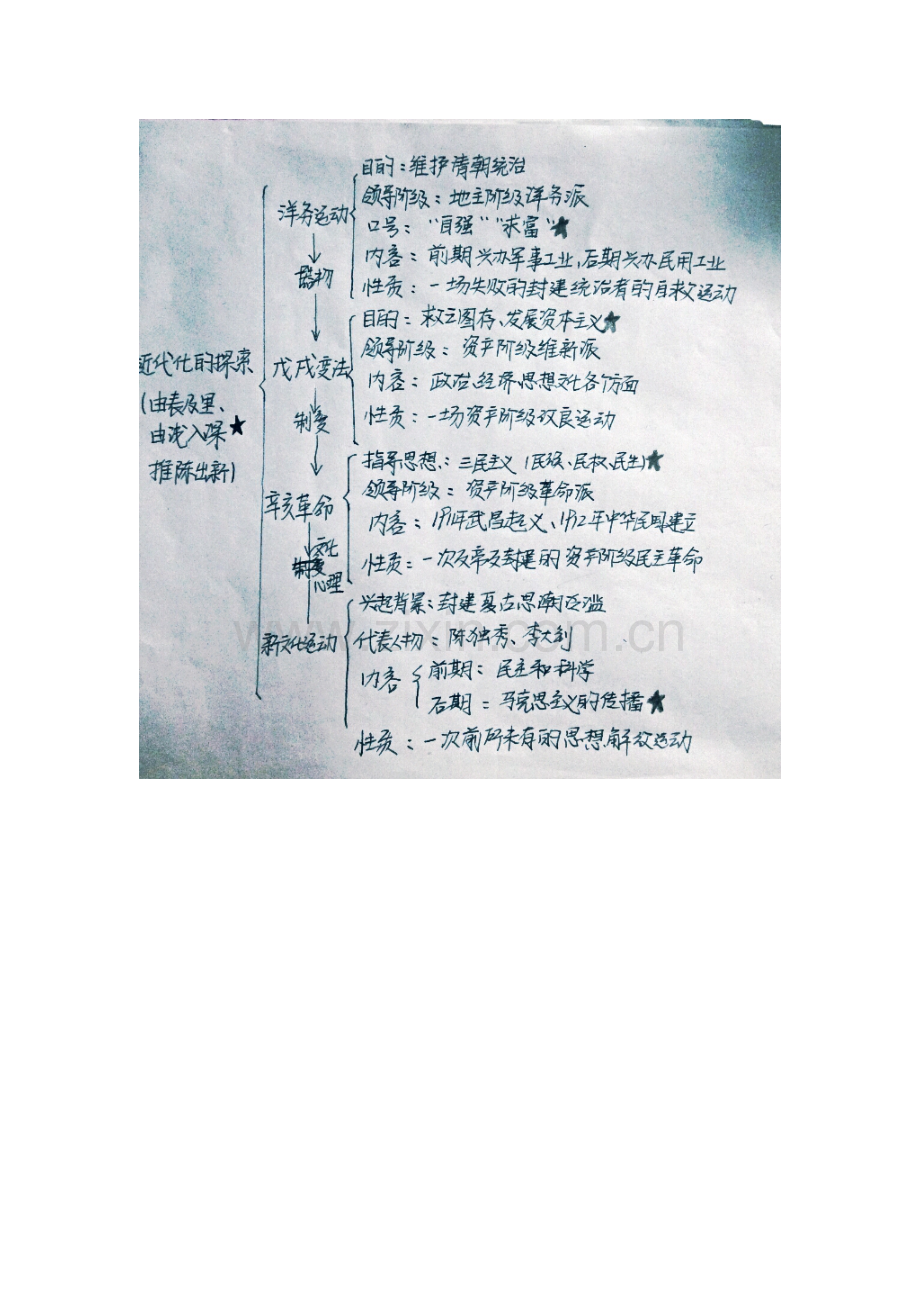 近代化的探索
(由表及里、
由浅入深★
推陈出新)
洋务运动
目的：维护清朝统治
领导阶级：地主阶级洋务派
口号：“自强”“求富”★
内容：前期兴办军事工业,后期兴办民用工业
性质：一场失败的封建统治者的自救运动
器物
戊戌变法
目的：救亡图存、发展资本主义★
领导阶级：资产阶级维新派
内容：政治、经济、思想文化各个方面
性质：一场资产阶级改良运动
制度
辛亥革命
指导思想：三民主义(民族、民权、民生)★
领导阶级：资产阶级革命派
内容：1911年武昌起义、1912年中华民国建立
性质：一次反帝反封建的资产阶级民主革命
文化
心理
新文化运动
兴起背景：封建复古思潮泛滥
代表人物：陈独秀、李大钊
内容
前期：民主和科学
后期：马克思主义的传播★
性质：一次前所未有的思想解放运动
www.zixin.com.cn